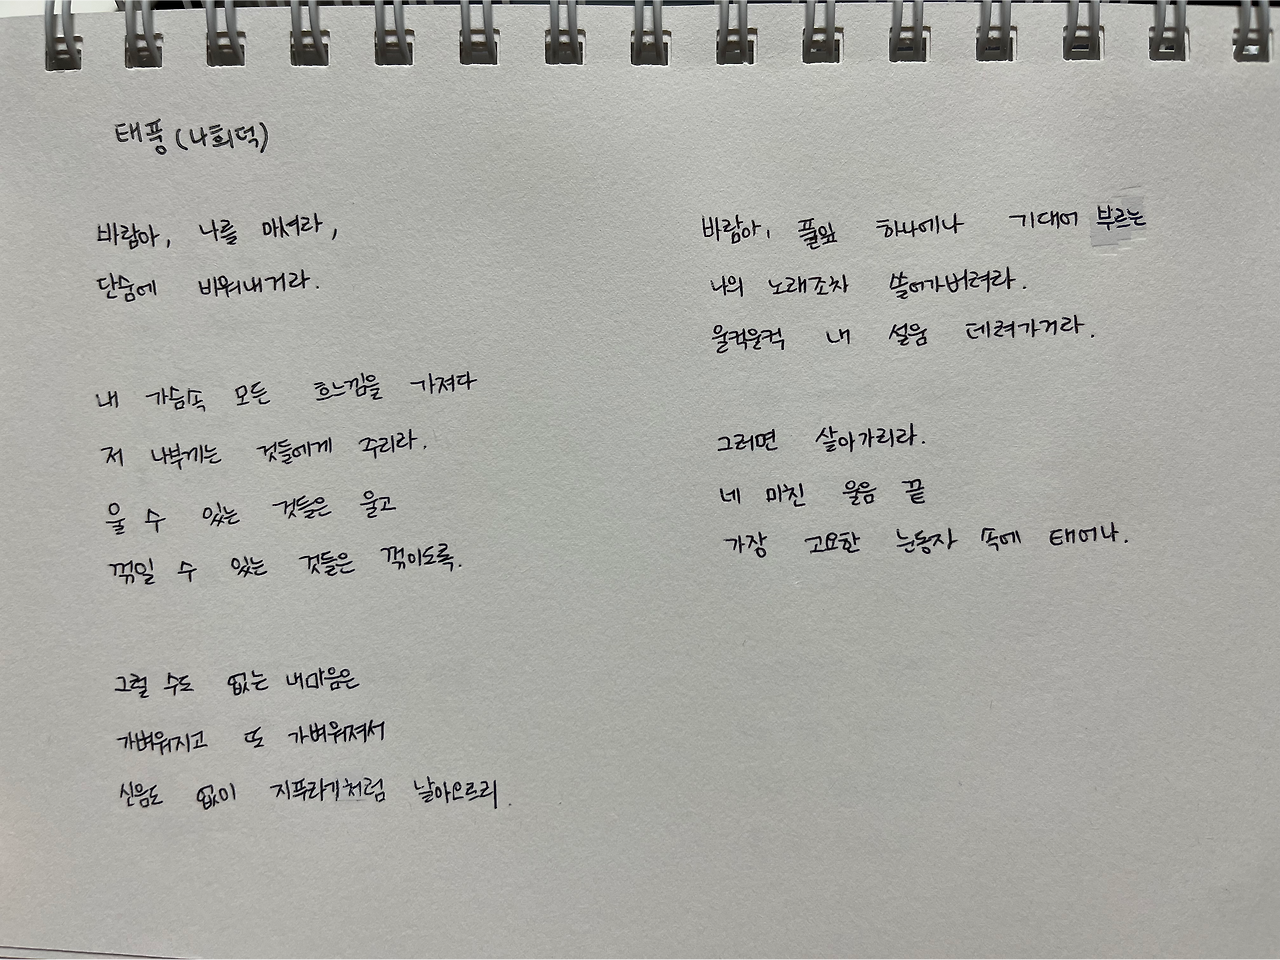 태풍 (나희덕)
바람아, 나를 마셔라,
단숨에 비워내거라.
내 가슴속 모든 흐느낌을 가져다
저 나부끼는 것들에게 주리라.
울 수 있는 것들은 울고
꺾일 수 있는 것들은 꺾이도록.
그럴 수도 없는 내마음은
가벼워지고 또 가벼워져서
신음도 없이 지푸라기처럼 날아오르리.
바람아, 풀잎 하나에나 기대어 부르는
나의 노래조차 쓸어가버려라.
울컥울컥 내 설움 데려가거라.
그러면 살아가리라.
네 미친 울음 끝
가장 고요한 눈동자 속에 태어나.